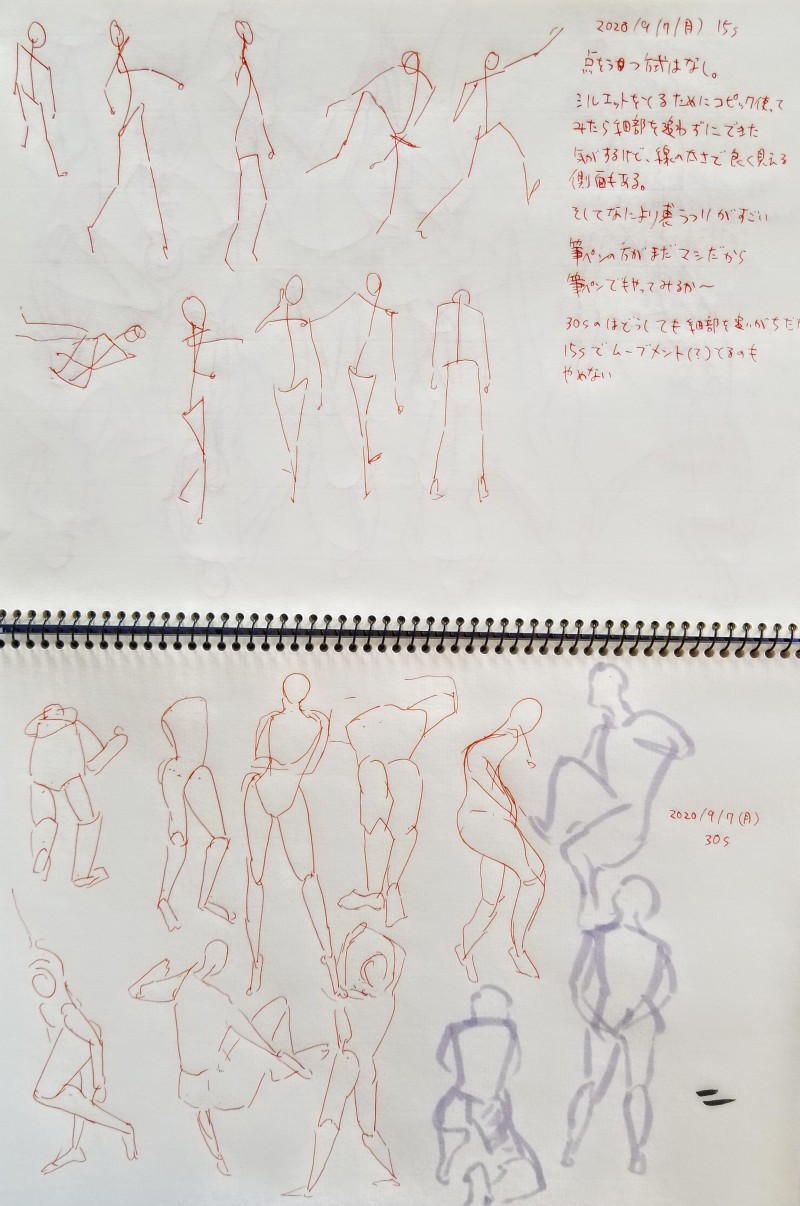 2020/9/7(月) 15s
点をうつ方式はなし。
シルエットをとるためにコピック使って
みたら細部を追わずにできた
気がするけど、線の太さで良く見える
側面もある。
そしてなにより裏うつりがすごい
筆ペンの方がまだマシだから
筆ペンでもやってみるか〜
30sのはどうしても細部を追いがちだか
15sでムーブメント(?)てるのも
やめない
2020/9/7(月)
30s